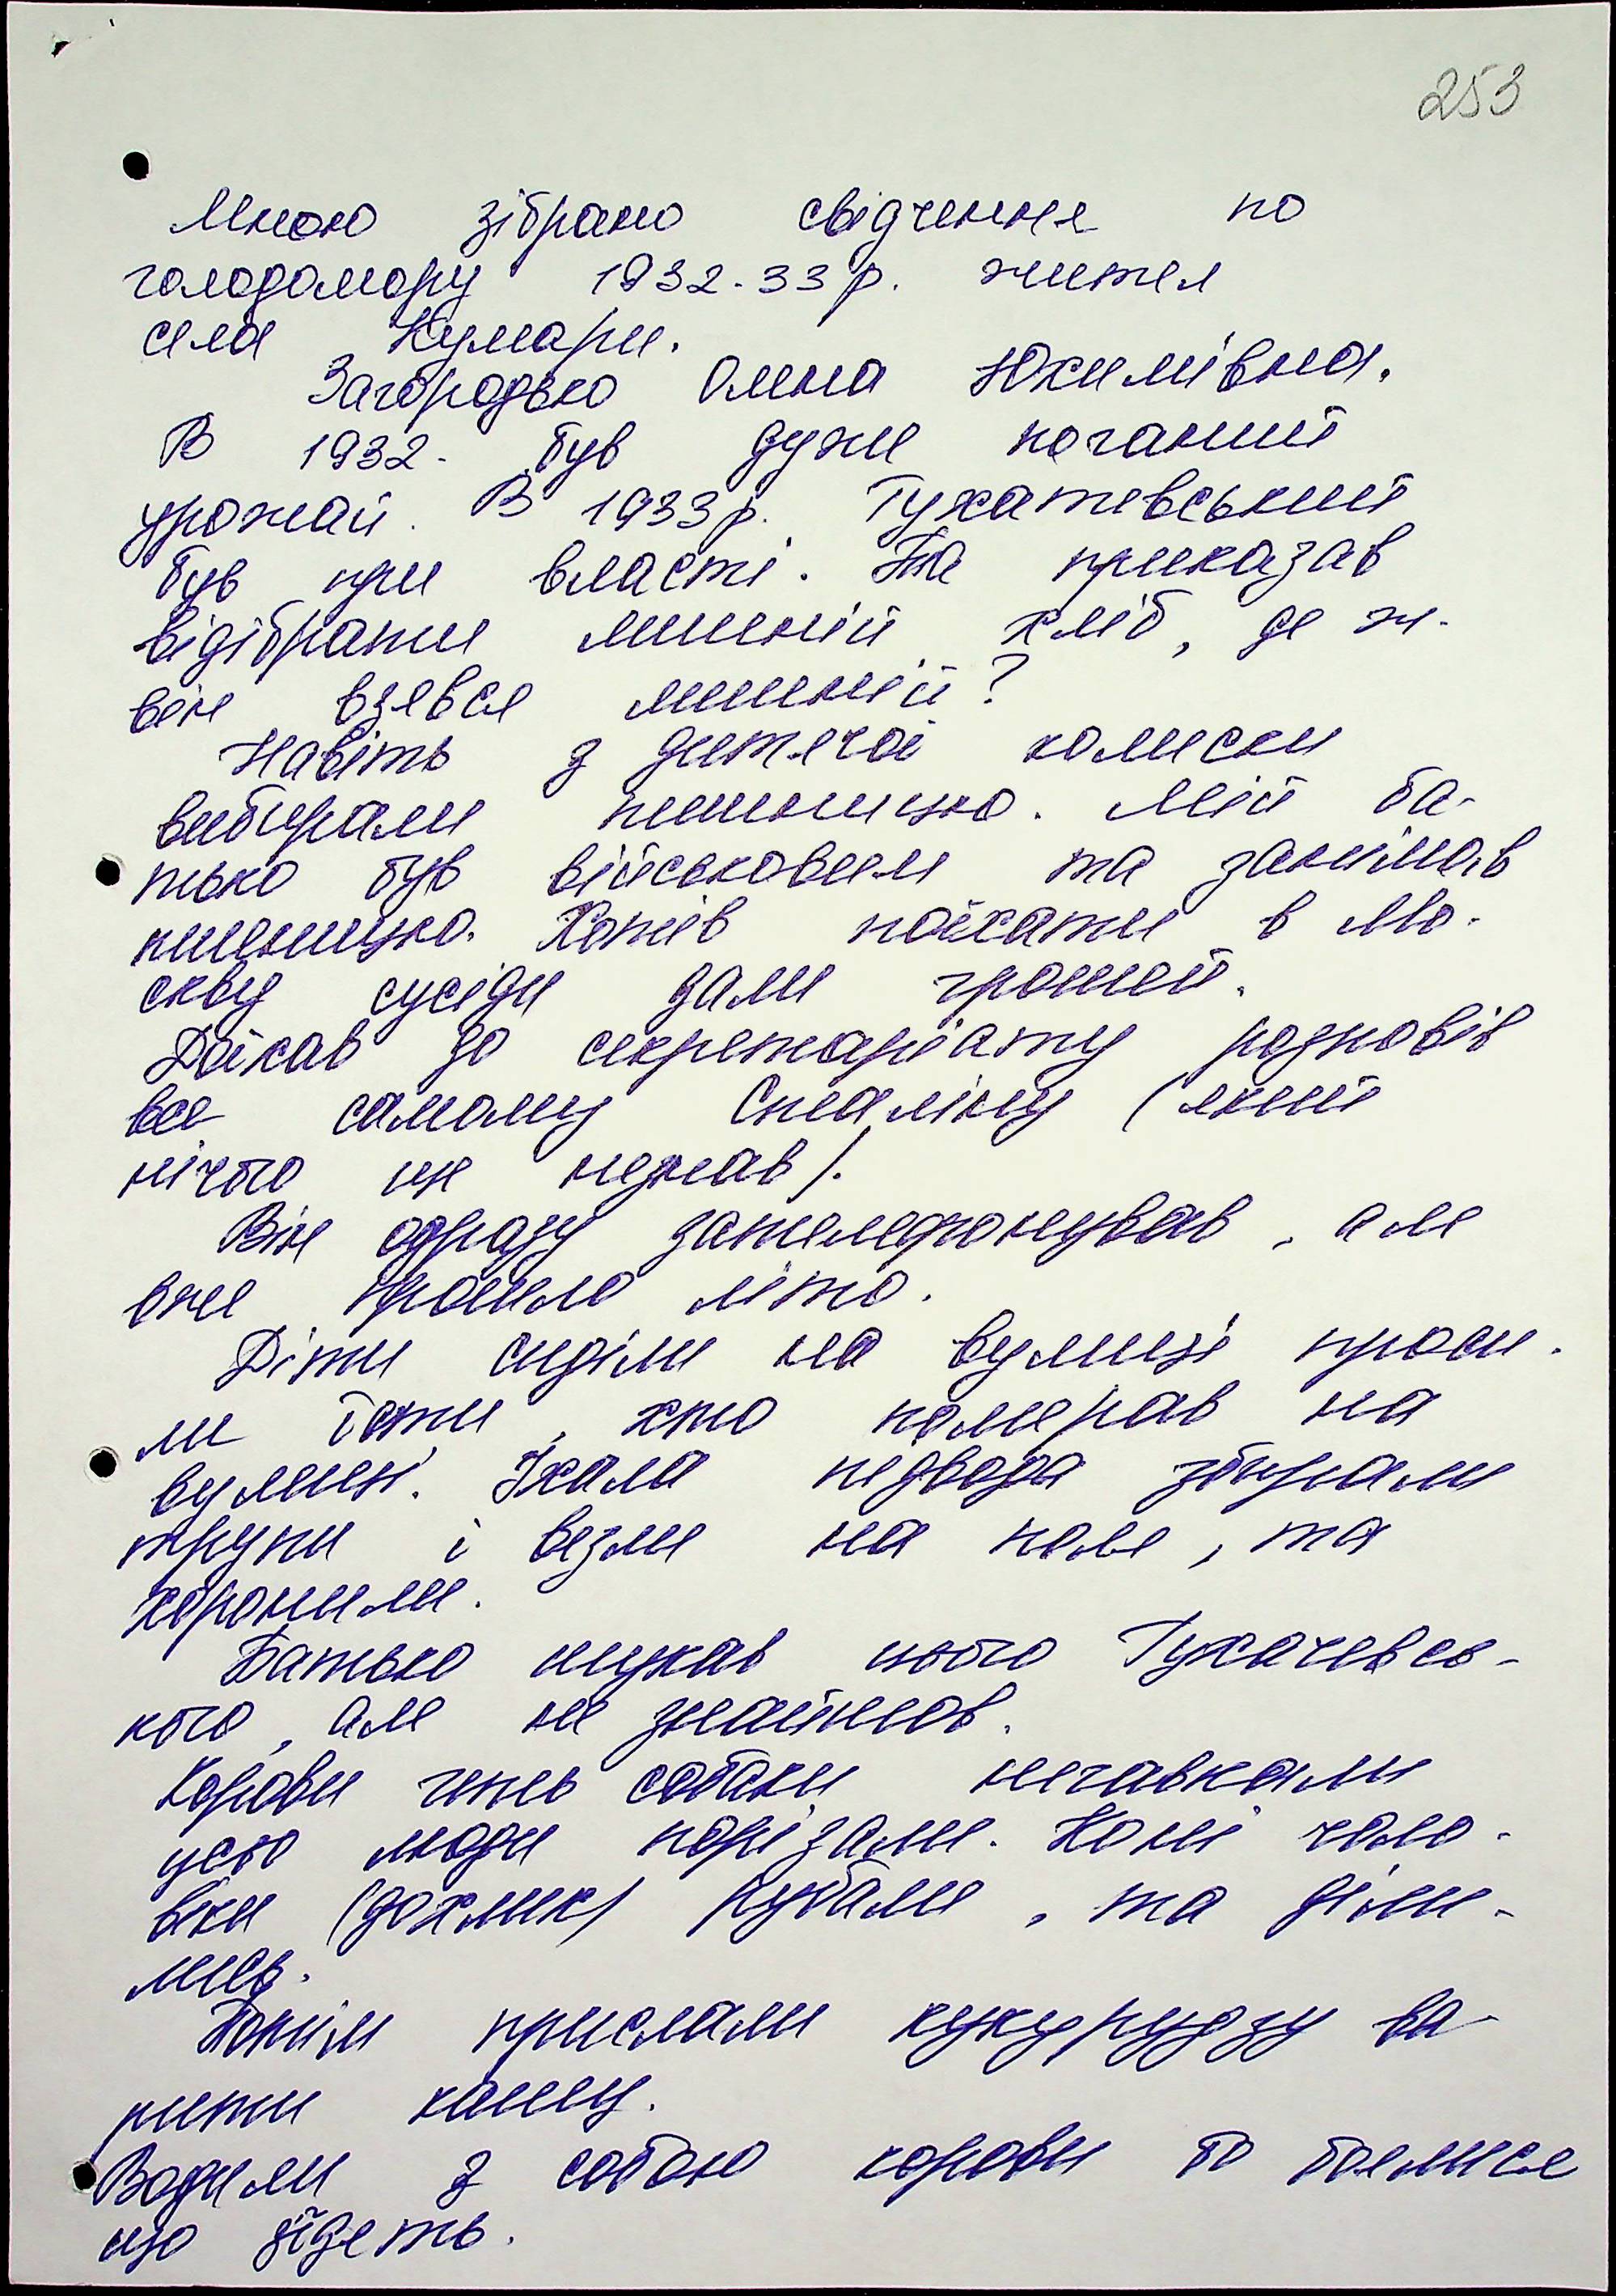 253
Мною зібрано свідчення по
голодомору 1932-33 р. жител
села Кумари.
Загородько Олена Юхимівна.
В 1932- був дуже поганий
урожай. В 1933 р. Тухачевський
був при власті. Та приказав
відібрати лишній хліб, де ж-
він взявся лишній?
Навіть з дитячої колиски
вибирали пшеницю. Мій ба-
тько був військовим та занімав
пшеницю. Хотів поїхати в Мо-
скву сусіди дали грошей.
Доїхав до секретаріату розповів
все самому Сталіну (який
нічого не незнав).
Він одразу зателефонував, але
вже пройшло літо.
Діти сиділи на вулиці проси-
ли їсти, хто помирав на
вулиці. Їхала підвода збирали
трупи і везли на поле, та
хоронили.
Батько шукав цього Тухачевсь-
кого, але не знайшов.
Корови собаки
усьо люди порізали. Коні чоло-
віки (дохлих) рубали, та діли-
лись.
Потім прислали кукурудзу ва-
рити кашу.
Водили з собою корови бо боялися
що з'їдеть.